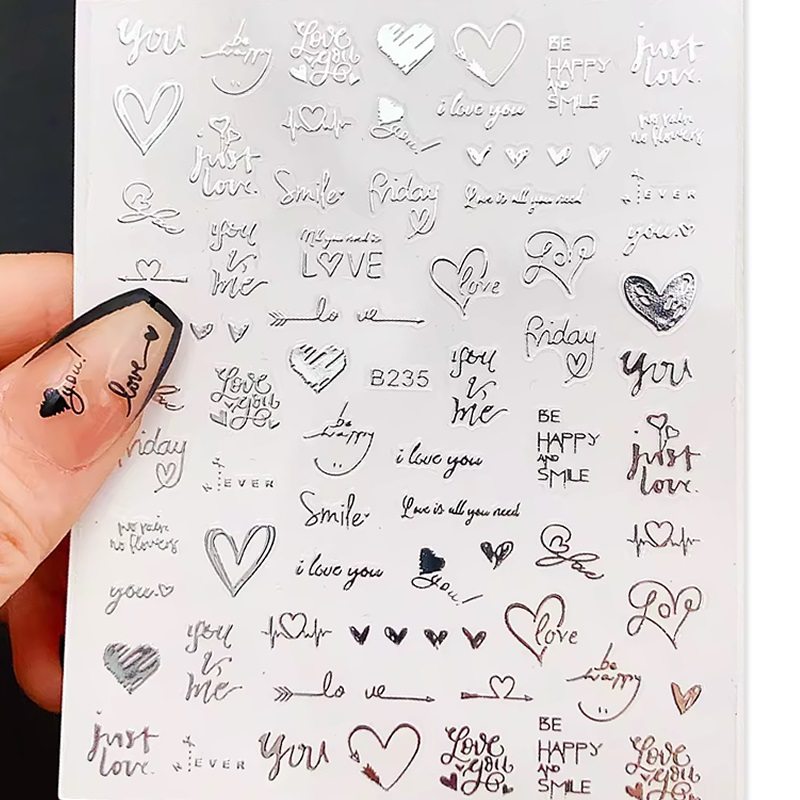 you
be
happy
Love
you
BE
HAPPY
AND
SMILE
just
love.
you!
i love you
no rain
no flowers
just
love.
Smile
friday
Love is all you need
EVER
you
you
is
me
All you need is
LOVE
love
love
friday
you
you!
love
Love
you
B235
you
is
me
BE
HAPPY
AND
SMILE
just
love.
be
happy
i love you
friday
EVER
Smile
Love is all you need
no rain
no flowers
i love you
you!
you
you
is
me
love
love
be
happy
just
love.
EVER
you
Love
you
BE
HAPPY
AND
SMILE
Love
you